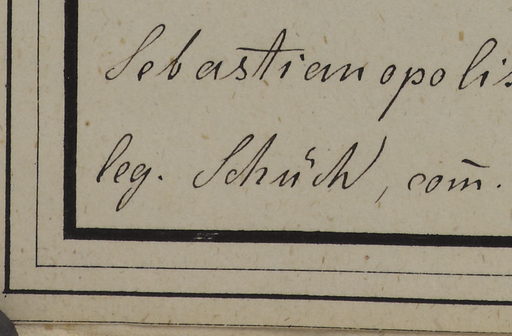 Sebastianopolis
leg. Schüch, com̄.